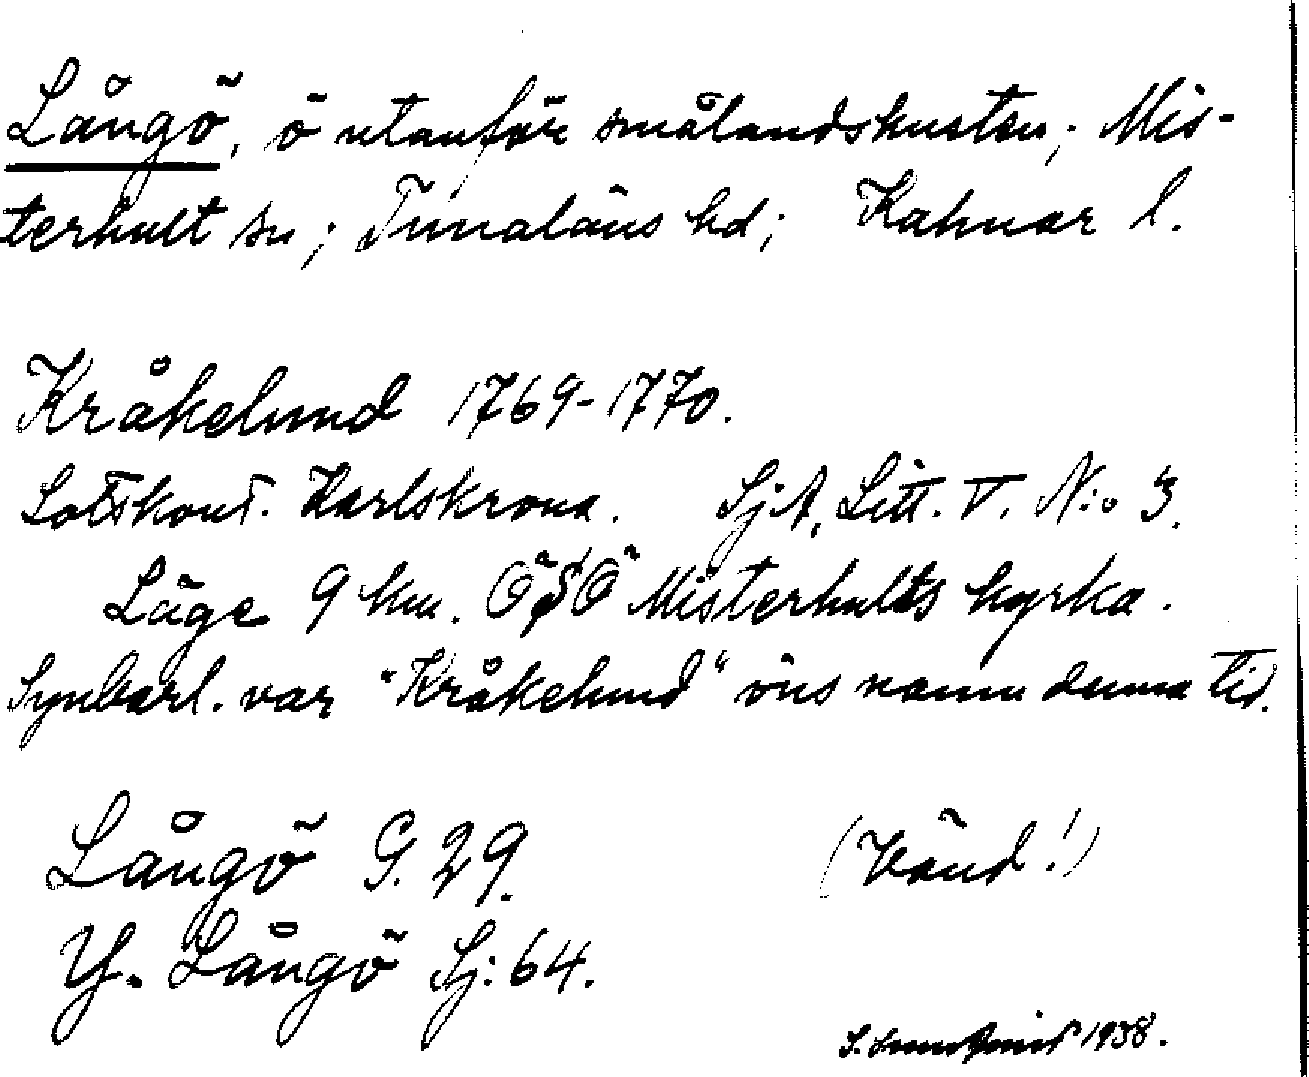 Långö, ö utanför smålandskusten; Mis-
terhult sn; Tunaläns hd; Kalmar l.
Kråkelund 1769-1770.
Lotskont. Karlskrona. Sj.A, Litt. V. N:o 3.
Läge 9 km. ÖSÖ Misterhults kyrka.
Synbarl. var "Kråkelund" öns namn denna tid.
Långö G. 29. (Vänd!)
Y. Långö Sj: 64.
S. 1938.